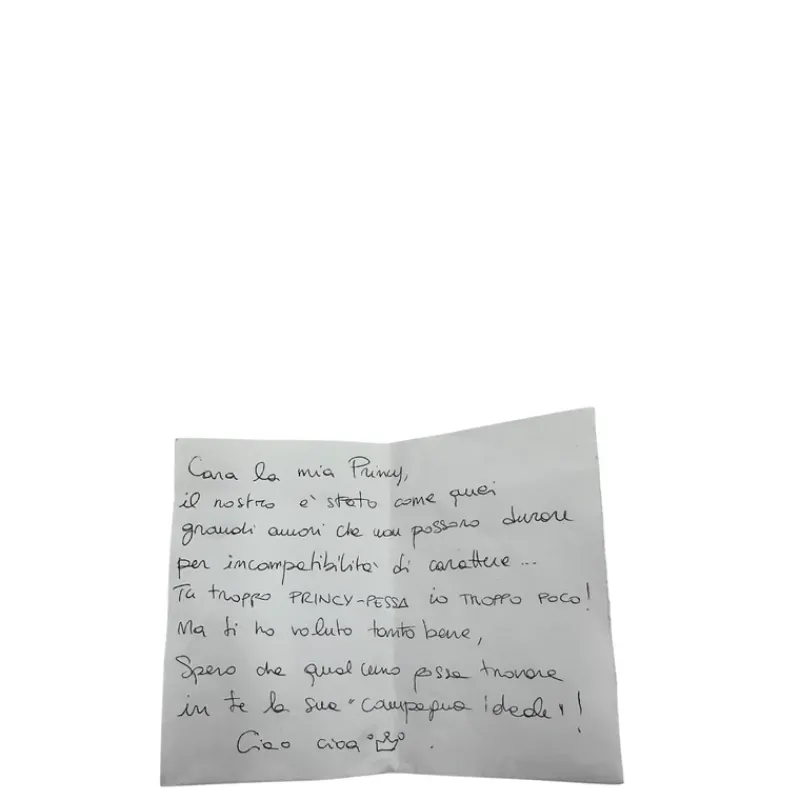 Cara la mia Princy,
il nostro e' stato come quei
grandi amori che non possono durare
per incompatibilita' di carattere ...
Tu troppo PRINCY-PESSA io TROPPO POCO!
Ma ti ho voluto tanto bene,
Spero che qualcuno possa trovare
in te la sua "compagna ideale"!
Ciao